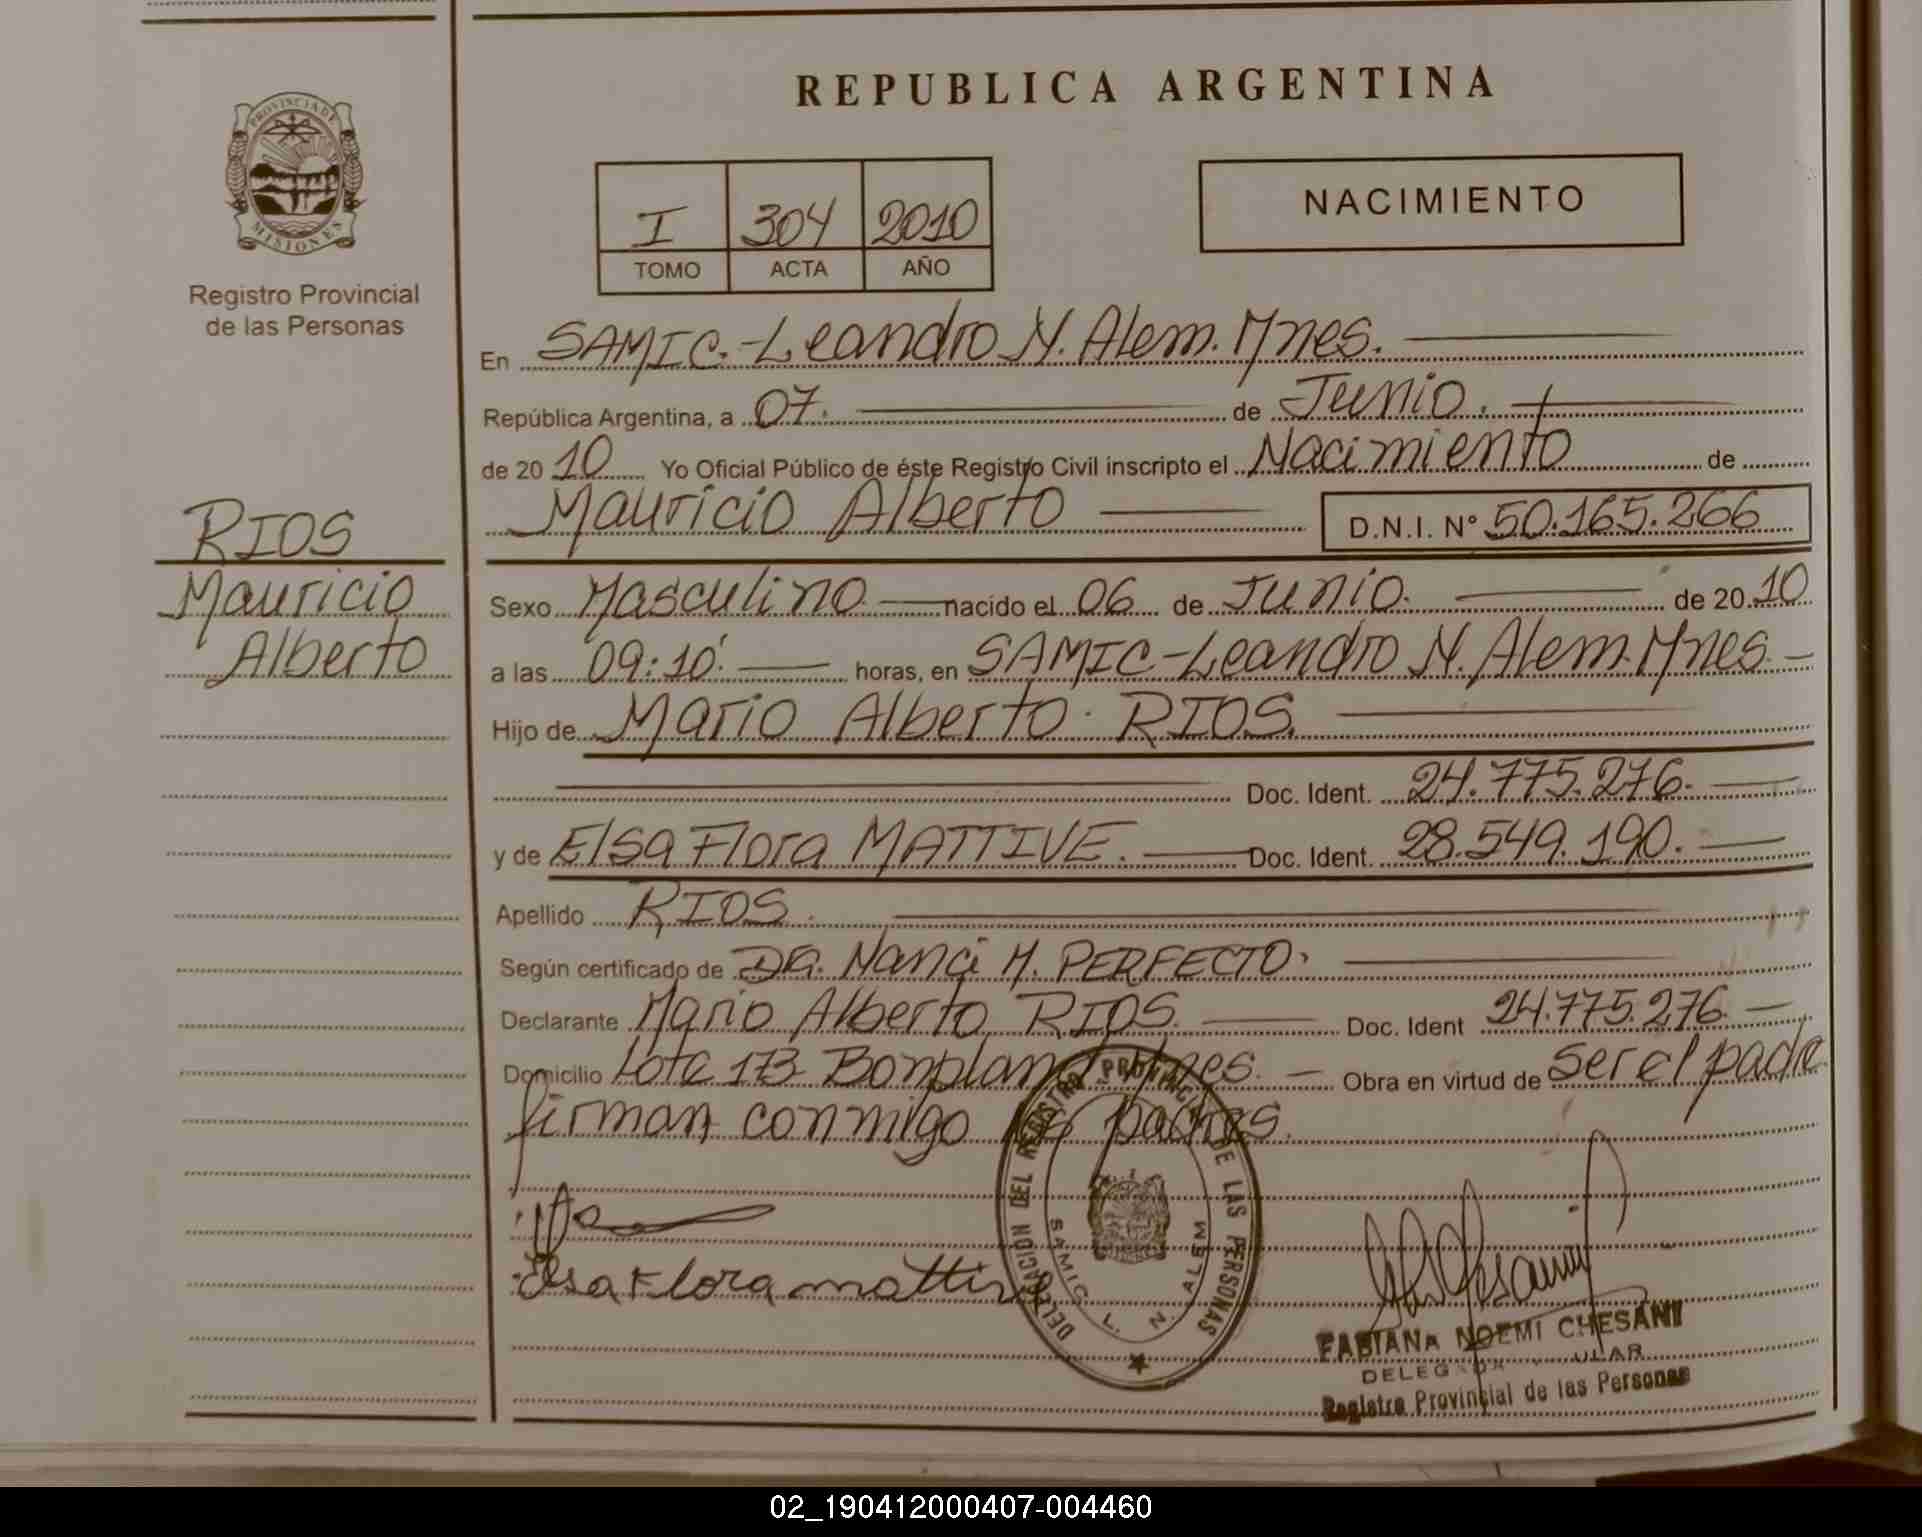 REPUBLICA ARGENTINA
PROVINCIA DE MISIONES
Registro Provincial
de las Personas
I 304 2010
TOMO ACTA AÑO
NACIMIENTO
En SAMIC.-Leandro N. Alem. Mnes.
República Argentina, a 07. de Junio.
de 2010 Yo Oficial Público de éste Registro Civil inscripto el Nacimiento de
Mauricio Alberto D.N.I. N° 50.165.266
RIOS
Mauricio
Alberto
Sexo Masculino nacido el 06 de Junio. de 2010
a las 09:10' horas, en SAMIC-Leandro N. Alem. Mnes.
Hijo de Mario Alberto RIOS.
Doc. Ident. 24.775.276.
y de Elsa Flora MATTIVE. Doc. Ident. 28.549.190.
Apellido RIOS.
Según certificado de Nanci M. PERFECTO.
Declarante Mario Alberto RIOS. Doc. Ident 24.775.276
Domicilio Lote 173 Bonpland Mnes. Obra en virtud de ser el padre
firman conmigo los padres.
Elsa Flora mattive
DELEGACION DEL REGISTRO PROVINCIAL DE LAS PERSONAS
SAMIC L. N. ALEM
FABIANA NOEMI CHESANI
DELEGADA TITULAR
Registro Provincial de las Personas
02_190412000407-004460